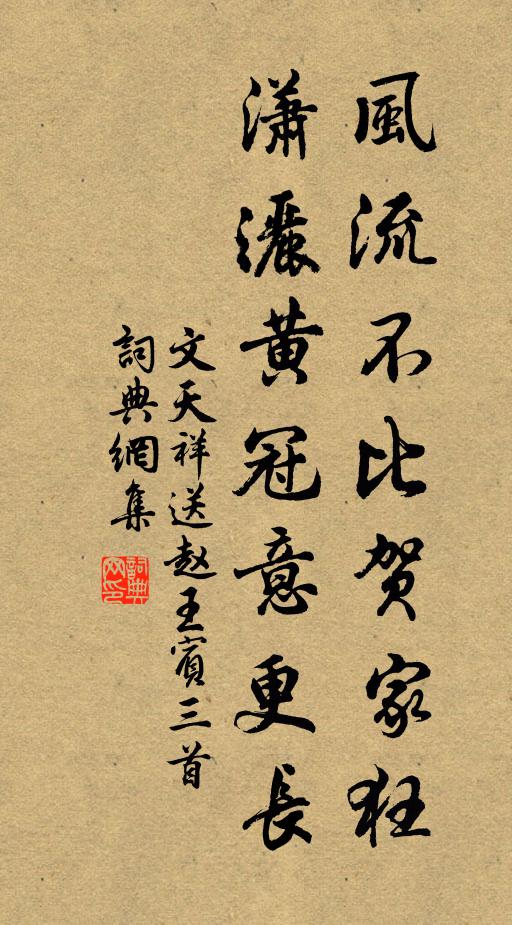 風流不比贺家狂
瀟灑黄冠意更長
文天祥送赵王賓三首
詞典網集
詞典网印